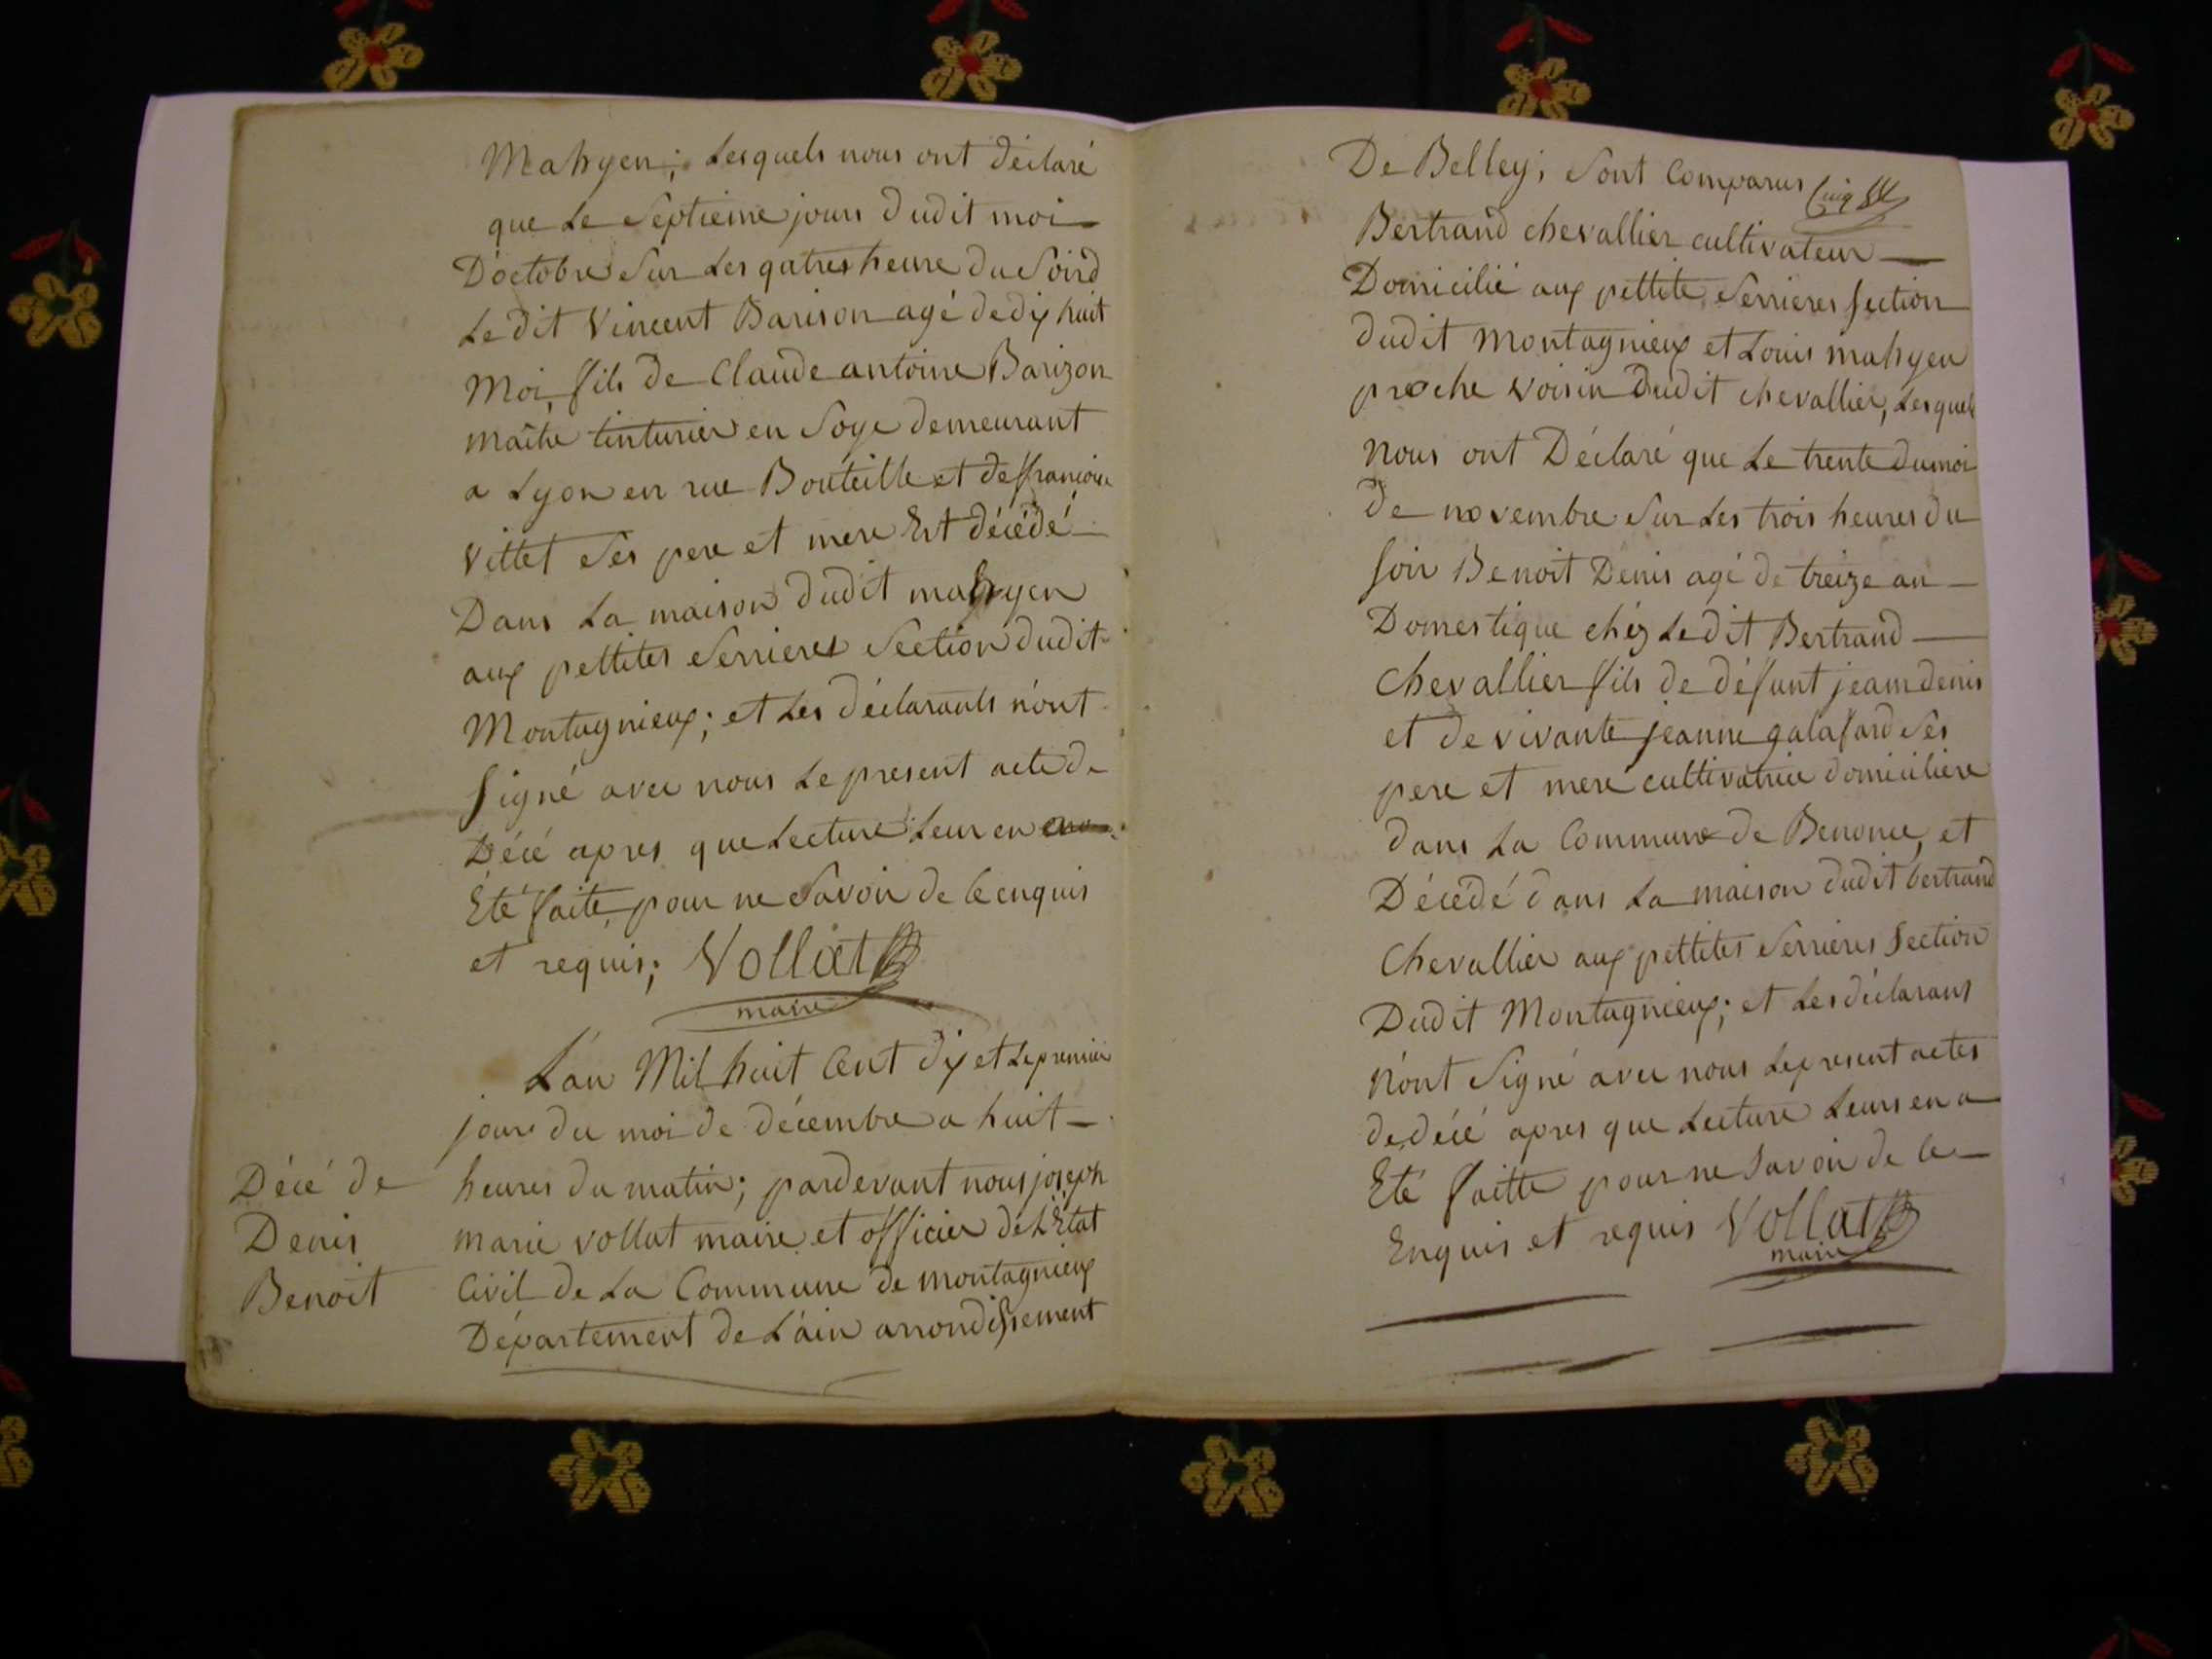 Mahyen; Lesquels nous ont déclaré
que Le Septieme jours dudit moi
D'octobre Sur Les qatres heure du Soird
Le dit Vincent Barison agé de dix huit
Moi, fils de Claude antoine Barizon
maître tinturier en Soye demeurant
a Lyon en rue Bouteille et de francoise
Vittet Ses pere et mere Est décédé
Dans La maison dudit mahyen
aux pettites Serrieres Section dudit
Montagnieux; et Les déclarants n'ont
Signé avec nous Le present acte de
Décé apres que Lecture Leur en
Eté faite, pour ne Savoir de Ce enquis
et requis; Vollat
maire
L'an Mil huit Cent dix et Le premier
jours du moi de décembre a huit
heures du matin; pardevant nous joseph
marie vollat maire et officier de L'Etat
Civil de La Commune de montagnieux
Département de L'ain arrondissement
Décé de
Denis
Benoit
De Belley; Sont Comparus
Cinq
Bertrand chevallier cultivateur
Domicilié aux pettite Serrieres Section
dudit Montagnieux et Louis mahyen
proche voisin dudit chevallier, Lesquels
nous ont Déclaré que Le trente du moi
de novembre Sur Les trois heures du
Soir Benoit Denis agé de treize an
Domestique chéz Le dit Bertrand
Chevallier fils de défunt jean denis
et de vivante jeanne galafard Ses
pere et mere cultivatrice domiciliere
dans La Commune de Benonce, et
Décédé dans La maison dudit bertrand
Chevallier aux pettites Serrieres Section
Dudit Montagnieux; et Les déclarans
n'ont Signé avec nous Le present actes
de décé apres que Lecture Leurs en a
Eté faitte pour ne Savoir de Ce
Enquis et requis Vollat
maire